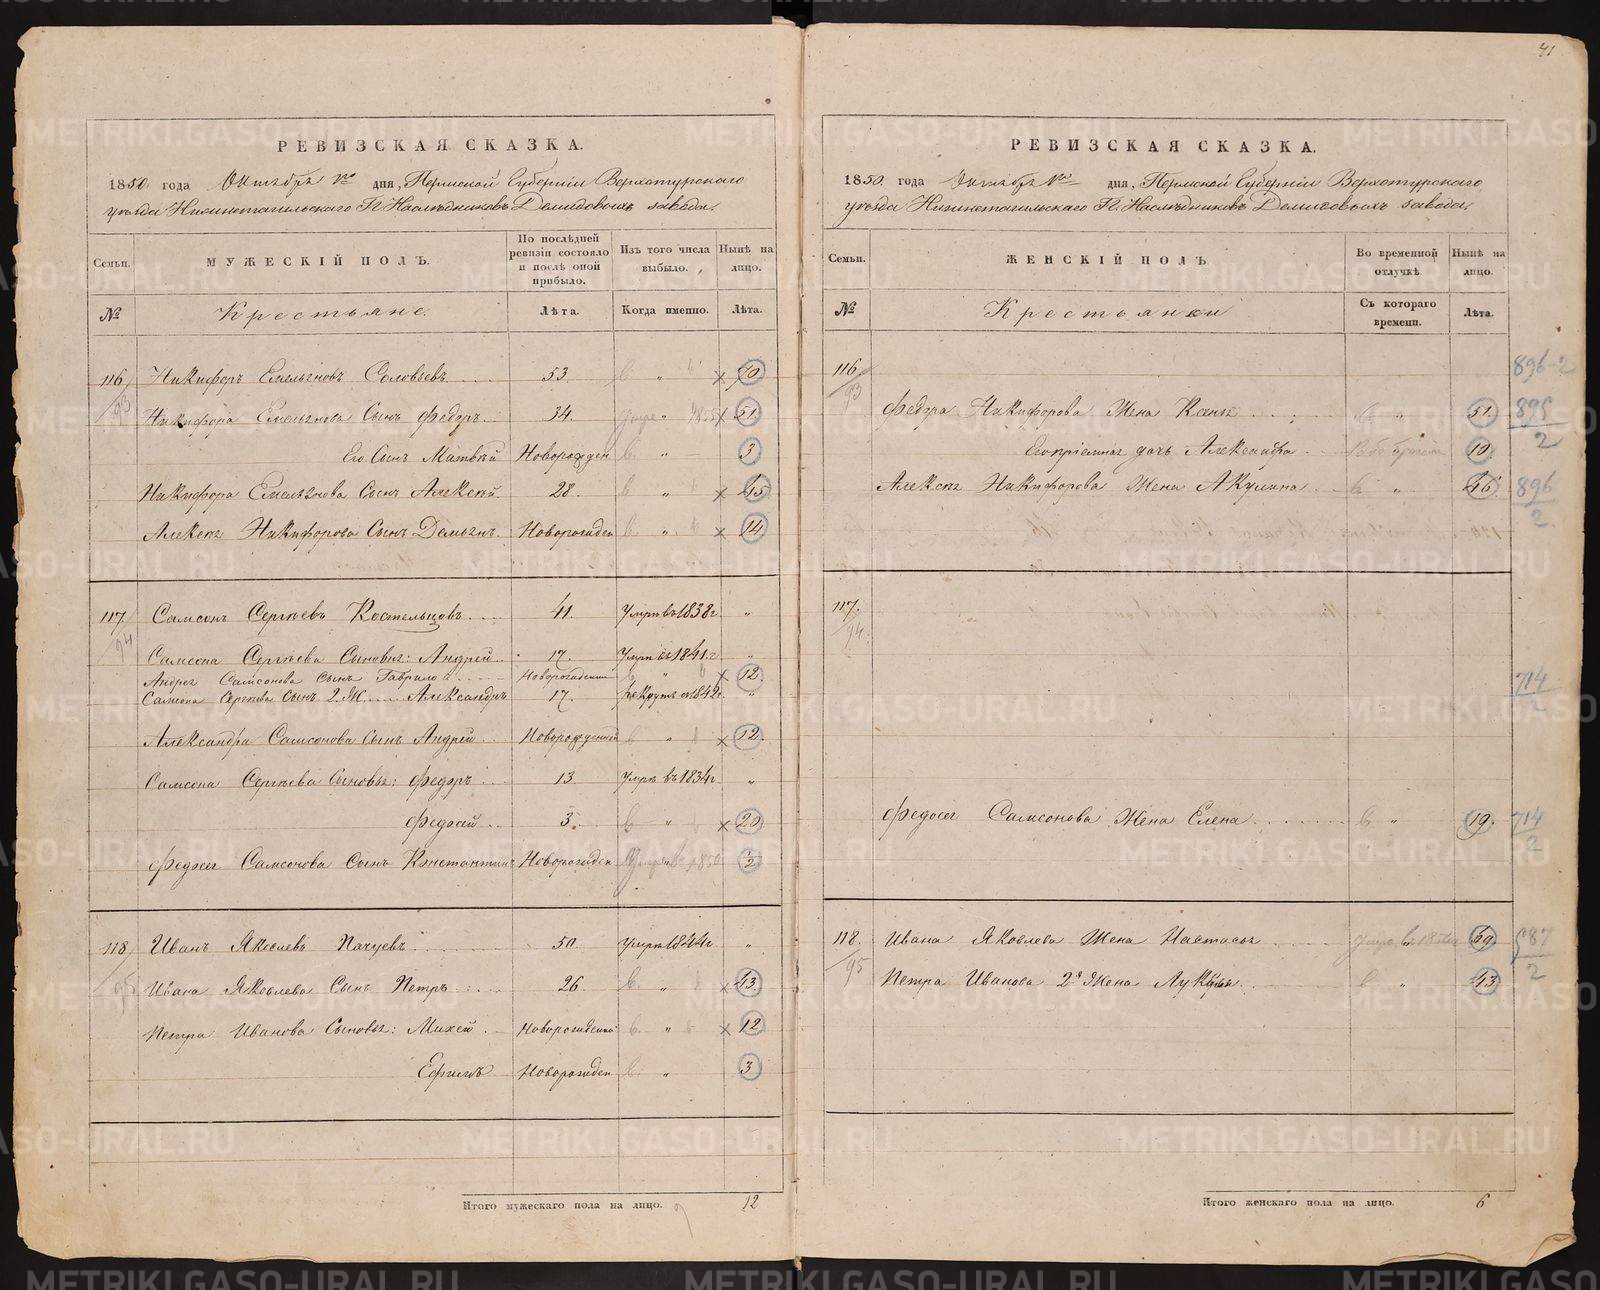 41
РЕВИЗСКАЯ СКАЗКА.
1850 года Октября 1го дня, Пермской Губерніи Верхотурскаго
уѣзда Нижнетагильскаго Г.г. Наслѣдниковъ Демидовыхъ завода.
Семьи. МУЖЕСКІЙ ПОЛЪ. По послѣдней ревизіи состояло и послѣ оной прибыло. Изъ того числа выбыло. Нынѣ на лицо.
№ Крестьяне. Лѣта. Когда именно. Лѣта.
116/93 Никифоръ Емельяновъ Соловьевъ 53 " 70
Никифора Емельянова Сынъ Федоръ 34 " 1855 51
Его Сынъ Матвѣй Новорожден " 3
Никифора Емельянова Сынъ Алексѣй 28 " 45
Алексея Никифорова Сынъ Демьянъ Новорожден " 14
117/94 Самсонъ Сергѣевъ Костельцовъ 41 Умре въ 1838 г "
Самсона Сергѣева Сыновья: Андрей 17 Умре въ 1841 г "
Андрея Самсонова Сынъ Гаврило Новорожденн 12
Самсона Сергѣева Сынъ 2. Ж. Александръ 17 рекрутъ с 1842 г. "
Александра Самсонова Сынъ Андрей Новорожденный " 12
Самсона Сергѣева Сыновья: Федоръ 13 Умре въ 1834 г "
Федосѣй 3 " 20
Федосея Самсонова Сынъ Константинъ Новорожден 1850 1/2
118/95 Иванъ Яковлевъ Пачуевъ 50 Умре 1844 г "
Ивана Яковлева Сынъ Петръ 26 " 43
Петра Иванова Сыновья: Михей Новорожденн " 12
Ефимъ Новорожден " 3
Итого мужескаго пола на лицо. 12
РЕВИЗСКАЯ СКАЗКА.
1850 года Октября 1го дня, Пермской Губерніи Верхотурскаго
уѣзда Нижнетагильскаго Г.г. Наслѣдниковъ Демидовыхъ завода.
Семьи. ЖЕНСКІЙ ПОЛЪ. Во временной отлучкѣ. Нынѣ на лицо.
№ Крестьянки Съ котораго времени. Лѣта.
116/93 896-2
Федора Никифорова Жена Ксенья " 51 895/2
Его пріемная дочь Александра 10
Алексея Никифорова Жена Акулина " 46 896/2
117/94
714
Федосея Самсонова Жена Елена " 19 714/2
118/95 Ивана Яковлева Жена Настасья 69 587/2
Петра Иванова 2я Жена Лукерья " 43
Итого женскаго пола на лицо. 6
METRIKI.GASO-URAL.RU